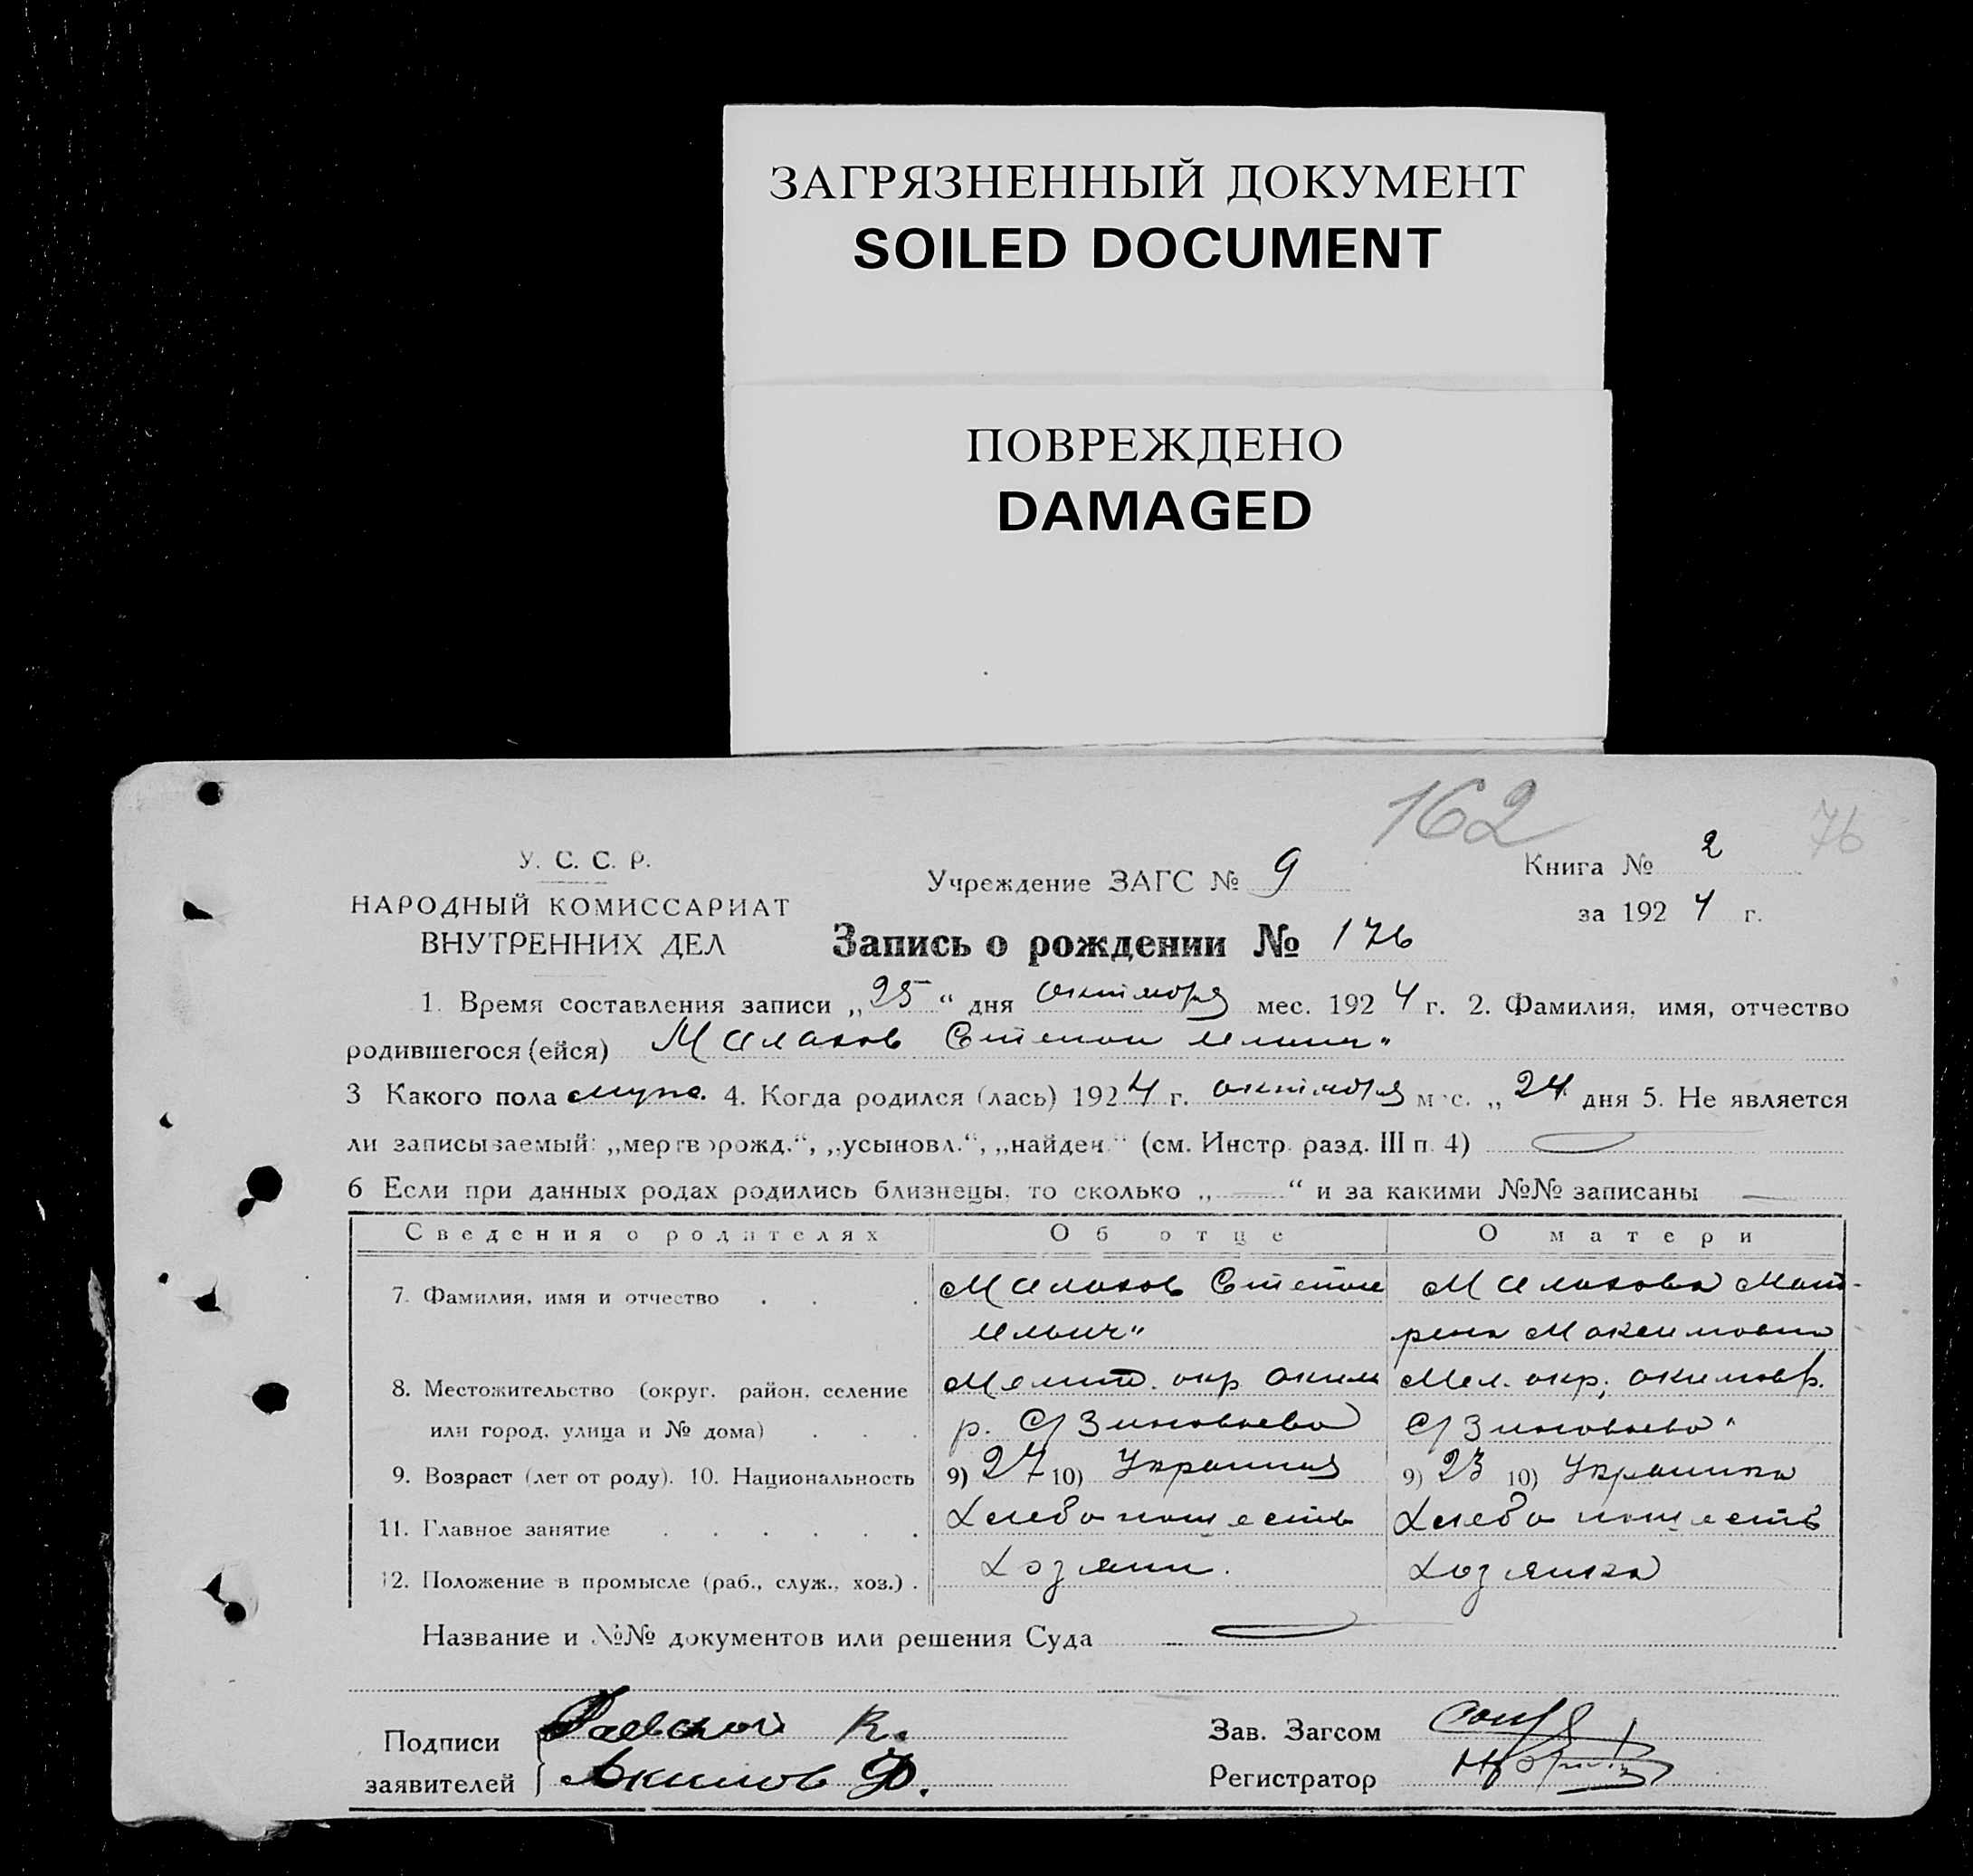 ЗАГРЯЗНЕННЫЙ ДОКУМЕНТ
SOILED DOCUMENT
ПОВРЕЖДЕНО
DAMAGED
162
76
У. С. С. Р.
НАРОДНЫЙ КОМИССАРИАТ
ВНУТРЕННИХ ДЕЛ
Учреждение ЗАГС № 9
Книга № 2
за 1924 г.
Запись о рождении № 176
1. Время составления записи „25“ дня октября мес. 1924 г. 2. Фамилия, имя, отчество
родившегося (ейся) Малахов Степан Ильич
3 Какого пола муж. 4. Когда родился (лась) 1924 г. октября мес. „24 дня 5. Не является
ли записываемый: „мертворожд.“, „усыновл.“, „найден.“ (см. Инстр. разд. III п. 4)
6 Если при данных родах родились близнецы, то сколько „ “ и за какими №№ записаны
Сведения о родителях Об отце О матери
7. Фамилия, имя и отчество Малахов Степан Малахова Мат-
Ильич рена Максимовна
8. Местожительство (округ, район, селение Мелит. окр Аким Мел. окр; Акимовр.
или город, улица и № дома) р. С/Зиновьево С/Зиновьево
9. Возраст (лет от роду). 10. Национальность 9) 27 10) 9) 23 10) Украинка
11. Главное занятие Хлебопашеств Хлебопашеств
12. Положение в промысле (раб., служ., хоз.) Хозяин. Хозяйка
Название и №№ документов или решения Суда
Подписи К.
заявителей Акимов Ф.
Зав. Загсом
Регистратор